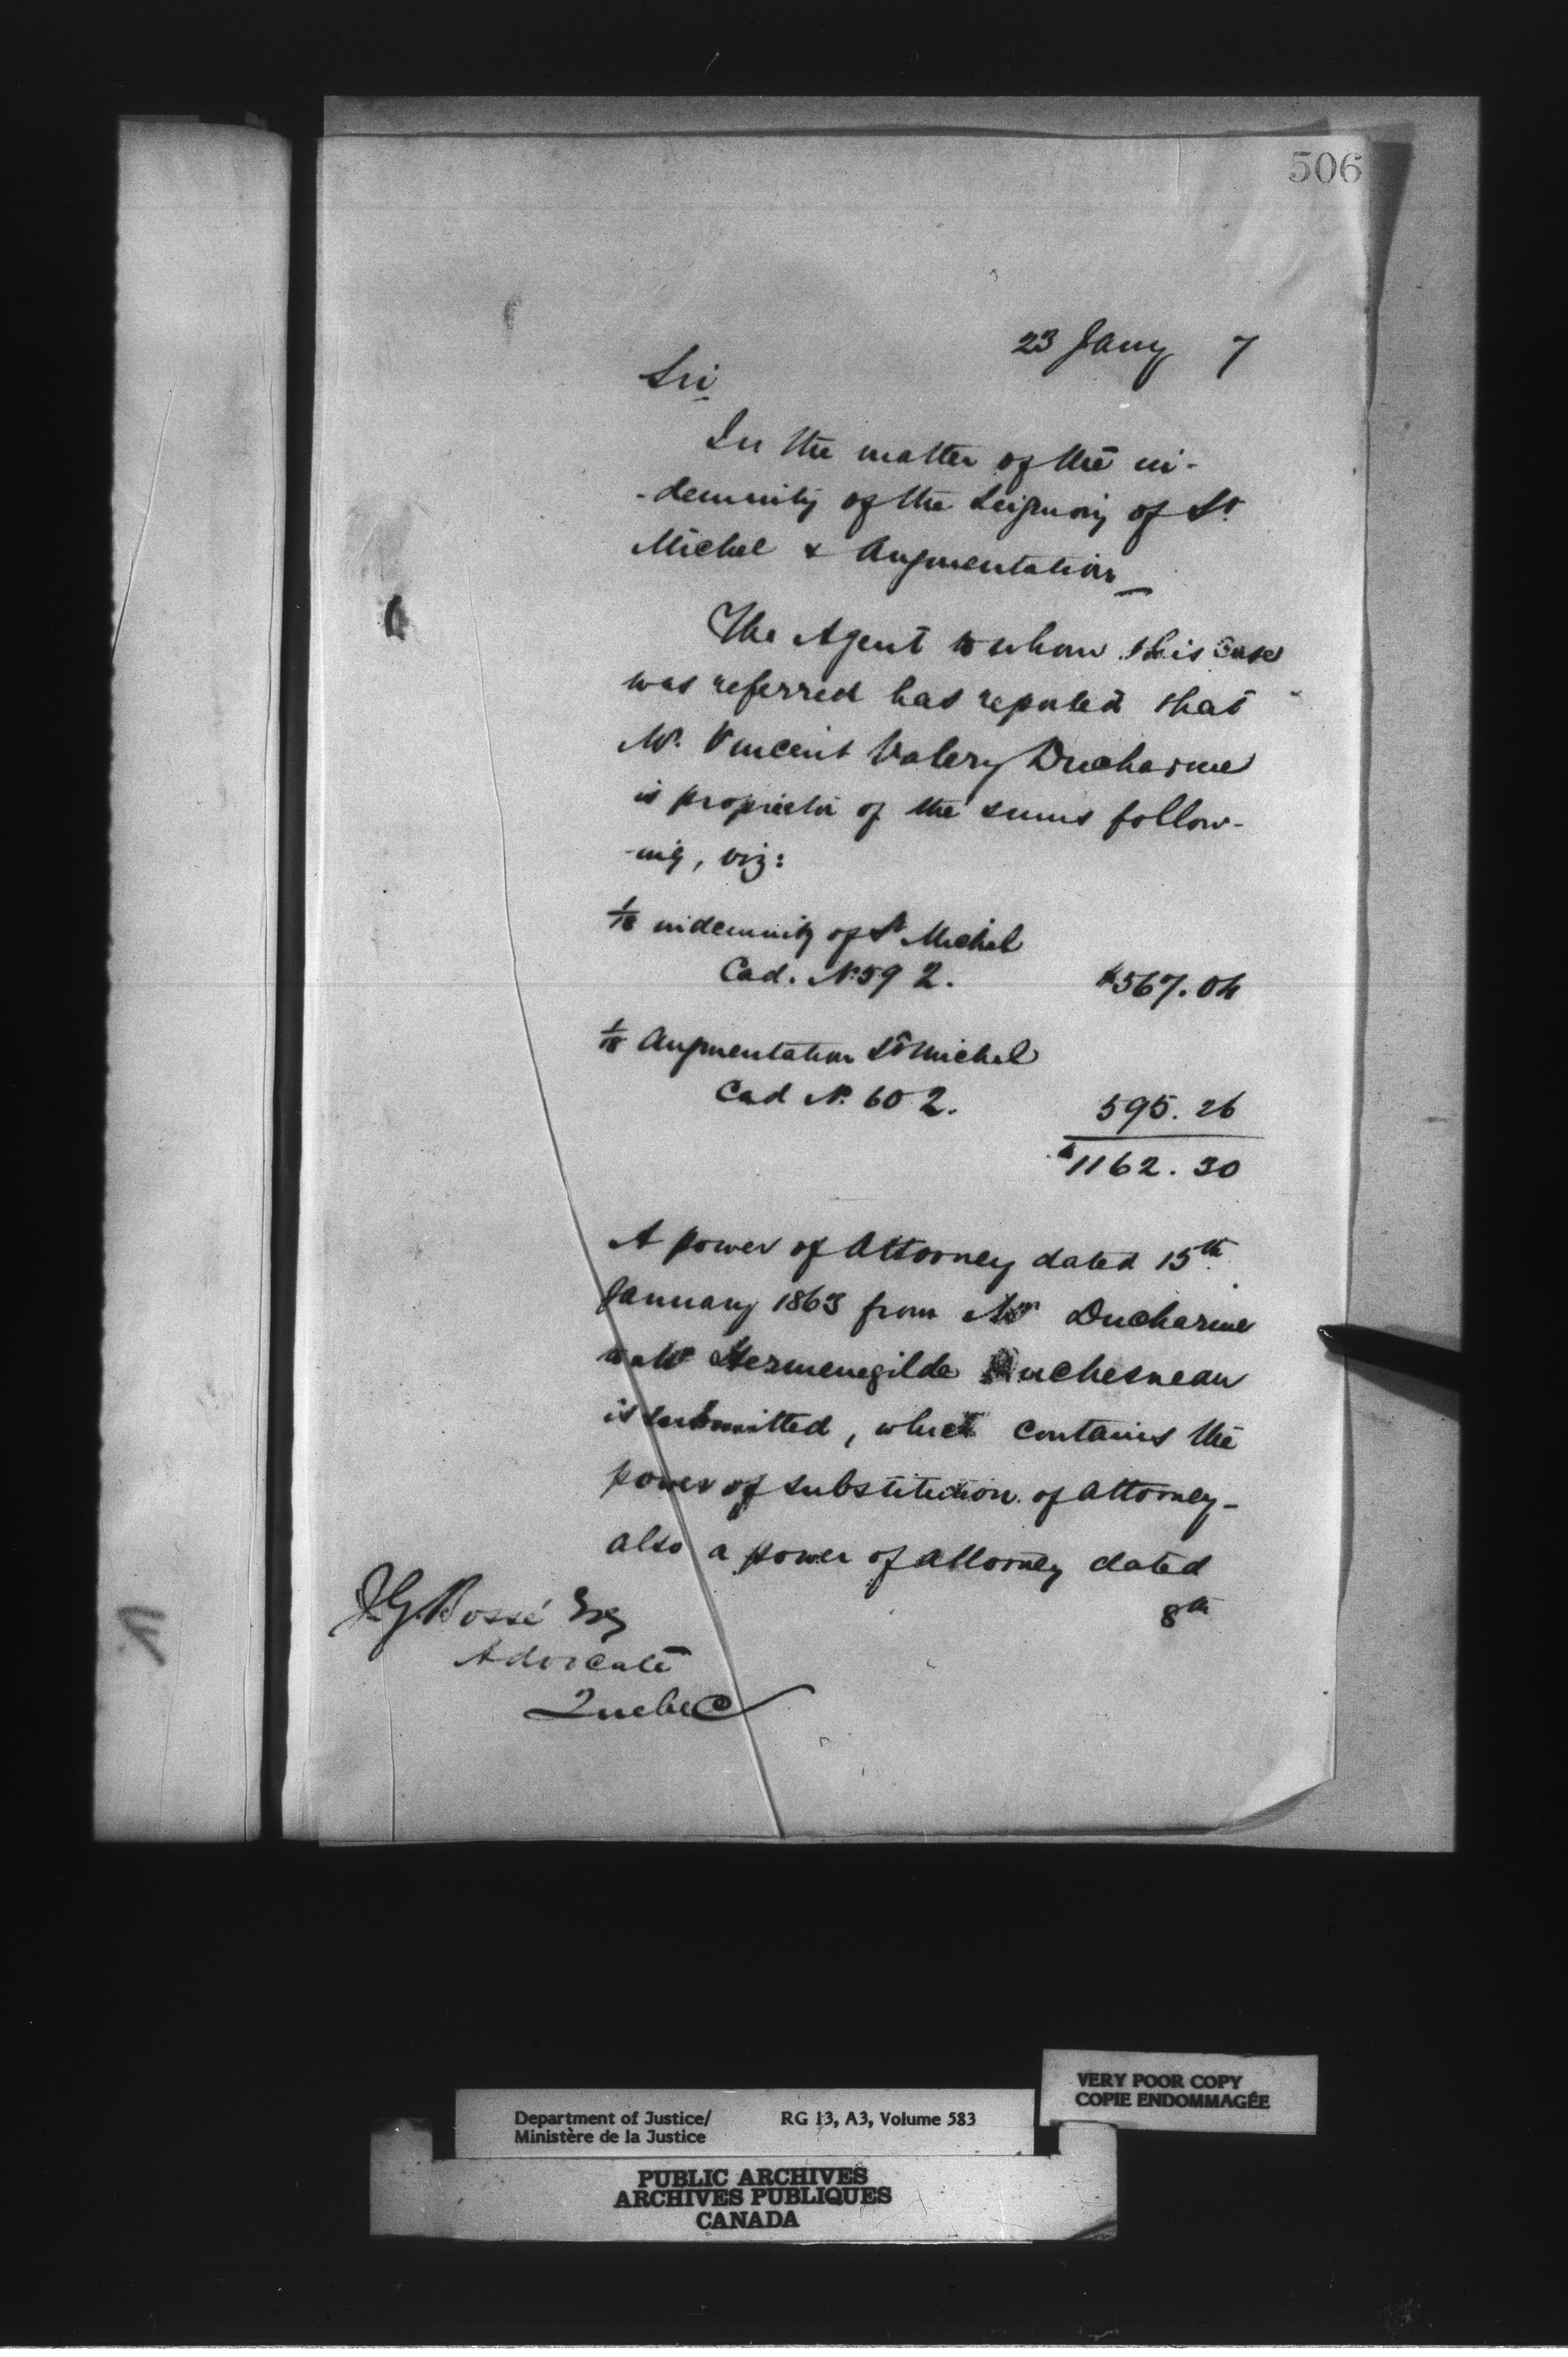 506
23 Jany 7
Sir
In the matter of the in-
-demnity of the Seigniory of St.
Michel & Augmentation
The Agent to whom this case
was referred has reported that
Mr. Vincent Valery Ducharme
is proprietor of the sums follow-
-ing, viz:
1/18 indemnity of St Michel
Cad. No 59 2. $567.04
1/18 Augmentation St Michel
Cad No. 60 2. 595.26
$1162.30
A power of Attorney dated 15th
January 1863 from Mr Ducharme
to Mr Hermenegilde Duchesneau
is submitted, which contains the
power of substitution of attorney-
also a power of attorney dated
8th
J.G. Bossé Esq
Advocate
Quebec
VERY POOR COPY
COPIE ENDOMMAGÉE
Department of Justice/ RG 13, A3, Volume 583
Ministère de la Justice
PUBLIC ARCHIVES
ARCHIVES PUBLIQUES
CANADA